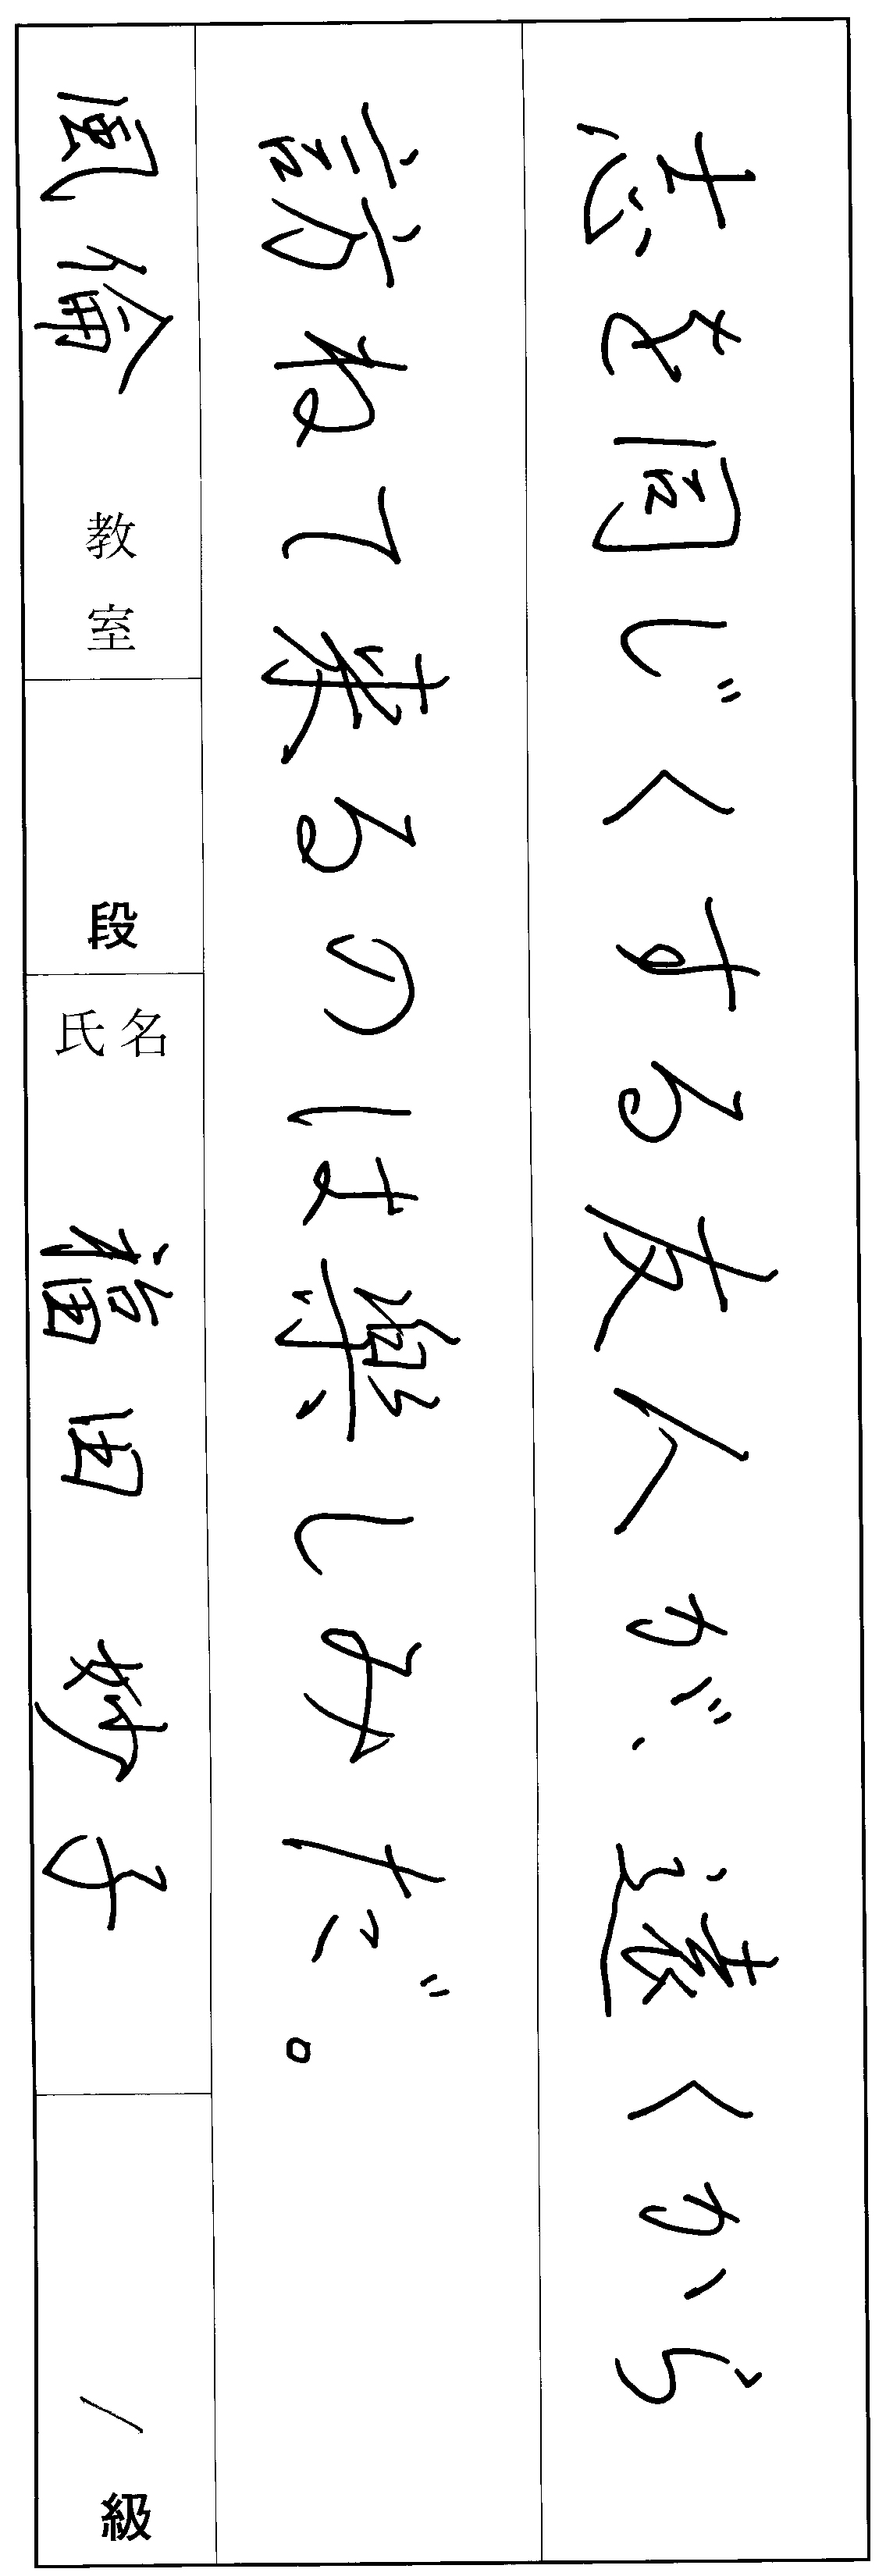 志を同じくする友人が、遠くから
訪ねて来るのは楽しみだ。
風倫 教室
段
氏名 福田 妙子
1 級